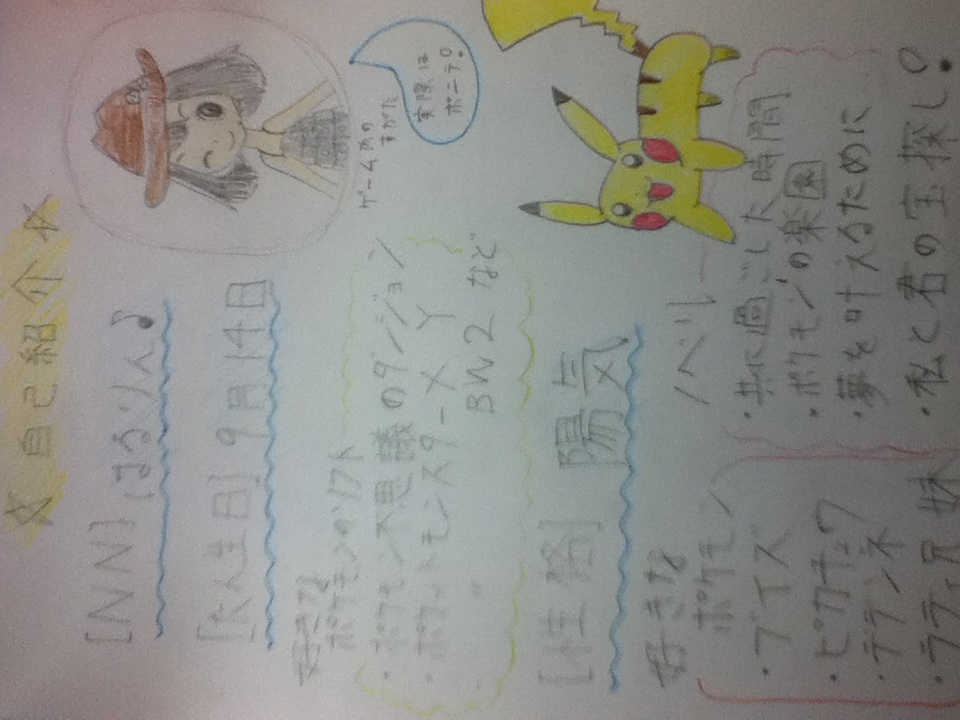 ☆自己紹介☆
[NN] はるりん♪
[たん生日] 9月14日
ゲーム内の
すがた
実際は
ポニテ。
好きな
ポケモンのソフト
・ポケモン不思議のダンジョン
・ポケットモンスターX Y
〃 BW2 など
[性格] 陽気
好きな
ポケモン
・ブイズ
・ピカチュウ
・デデンネ
・ラティ兄妹
ノベル
・共に過ごした時間
・ポケモンの楽園
・夢を叶えるために
・私と君の宝探し。